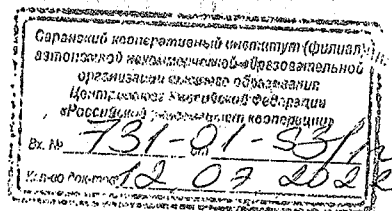 Саранский кооперативный институт (филиал)
автономной некоммерческой образовательной
организации высшего образования
Центросоюза Российской Федерации
«Российский университет кооперации»
Вх. № 731-01-53/
Кол-во док-тов 12.07 202